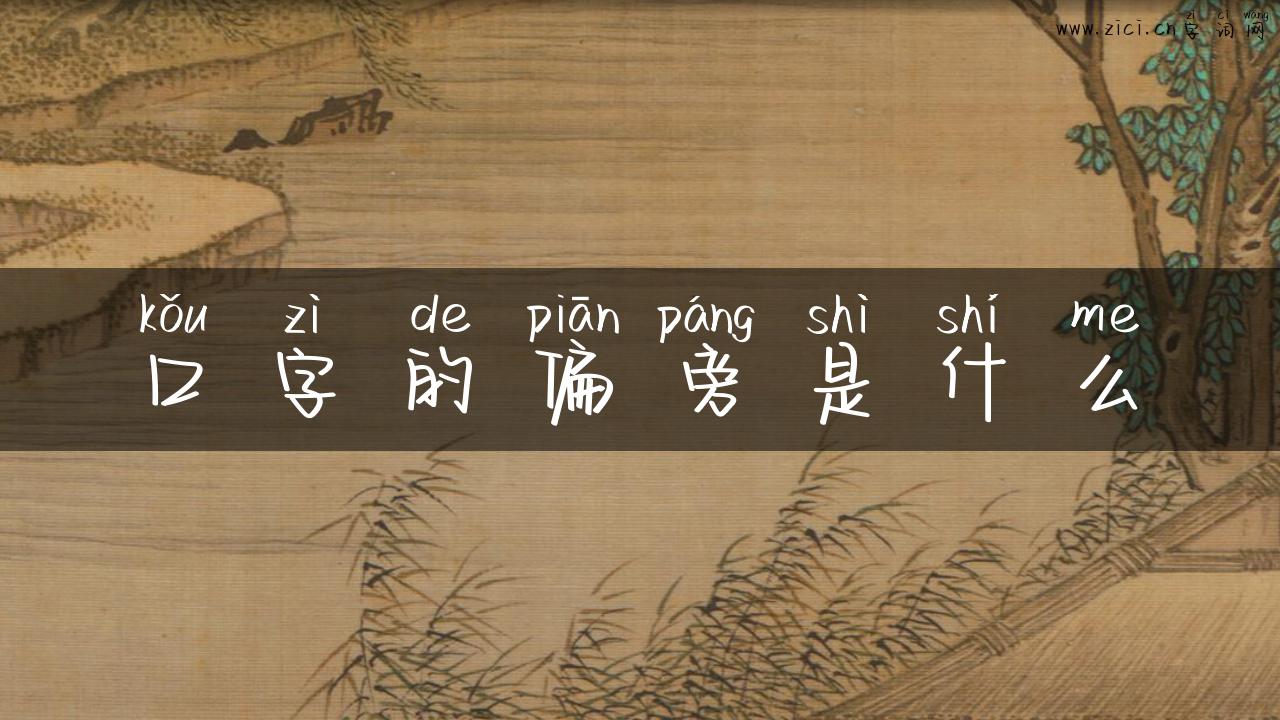 zì cí wǎng
www.zici.cn字词网
kǒu zì de piān páng shì shí me
口字的偏旁是什么